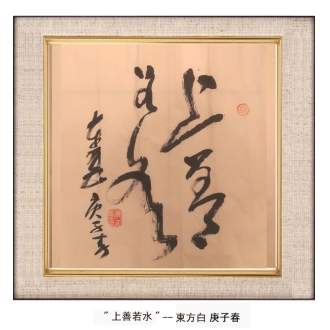 上善
若水
東方白 庚子春
"上善若水" -- 東方白 庚子春